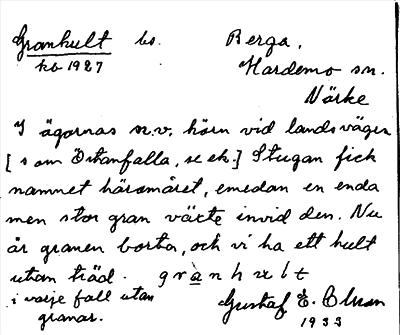 Grankult bs. Berga,
kb 1927 Hardemo sn.
Närke
I ägornas n.v. hörn vid landsvägen
[som Östanfalla, se ek.] Stugan fick
namnet häromåret, emedan en enda
men stor gran växte invid den. Nu
är granen borta, och vi ha ett hult
utan träd. grànhult
i varje fall utan
granar. Gustaf E. Olsson
1933